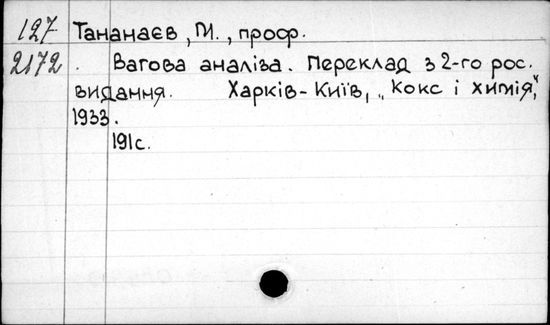 127 Тананаєв, М., проф.
2172. Вагова аналіза. Переклад з 2-го рос.
видання. Харків-Київ, „Кокс і химія,"
1933.
191с.